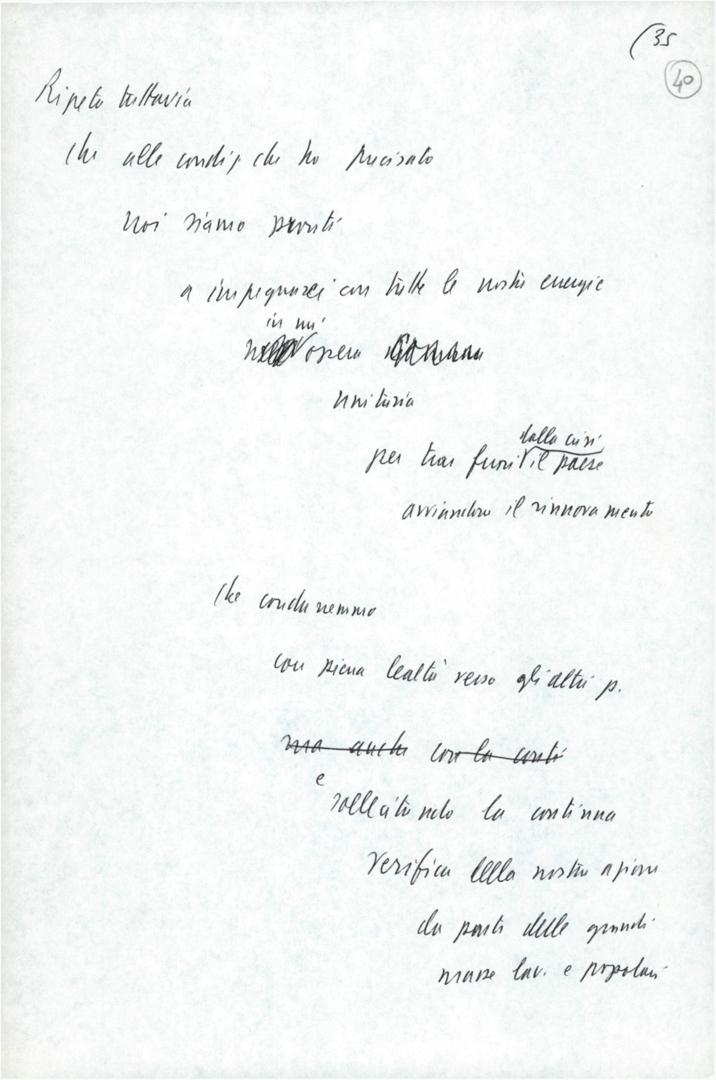 (35
40
Ripeto tuttavia
che alle condiz. che ho precisato
noi siamo pronti
a impegnarci con tutte le nostre energie
in un'
opera
unitaria
dalla crisi
per trar fuori il paese
avviandone il rinnovamento
che condurremmo
con piena lealtà verso gli altri p.
ma anche con la conti
e
sollecitando la continua
verifica della nostra azione
da parte delle grandi
masse lav. e popolari